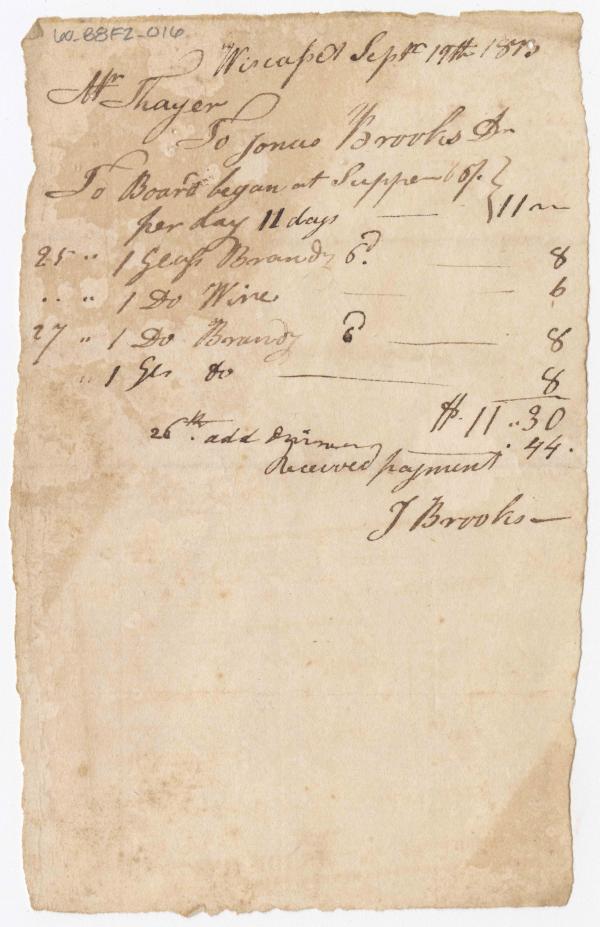 60-B8F2-016
Wiscasset Septr 19th 18
Mr Thayer
To Jonas Brooks Dr
To Board began at Supper 6/.
per day 11 days — 11 —
25 " 1 Glass Brandy 6d — 8
" " 1 Do Wine — 6
27 " 1 Do Brandy 6d — 8
" 1 Gls do — 8
$ 11 .. 30
26th. add — 44.
Received payment
J Brooks